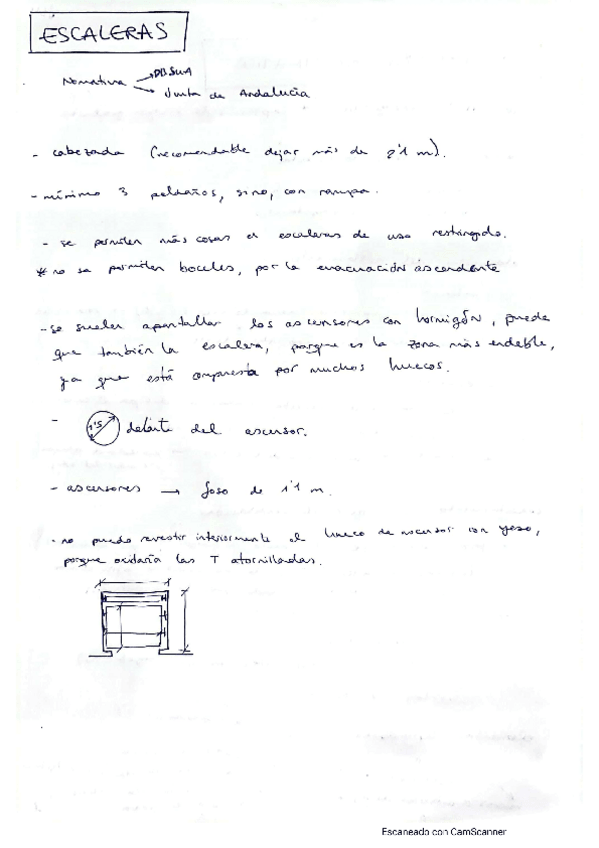 ESCALERAS
Normativa → DB SUA
→ Junta de Andalucía
- cabezada (recomendable dejar más de 2'1 m).
- mínimo 3 peldaños, sino, con rampa.
- se permiten más cosas en escaleras de uso restringido.
* no se permiten boceles, por la evacuación ascendente
- se suelen apantallar los ascensores con hormigón, puede
que también la escalera, porque es la zona más endeble,
ya que está compuesta por muchos huecos.
- 1'5 delante del ascensor.
- ascensores → foso de 1'1 m.
- no puedo revestir interiormente el hueco de ascensor con yeso,
porque oxidaría las T atornilladas.
Escaneado con CamScanner